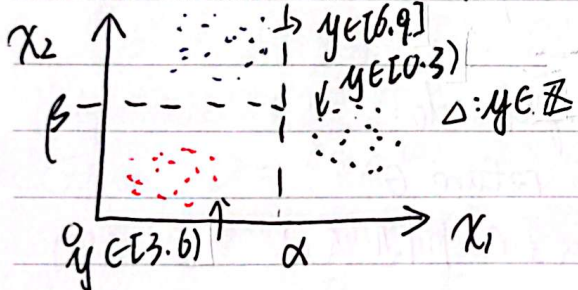 x₂
y∈[6.9]
y∈[0.3)
Δ:y∈ℤ
β
0
y∈[3.6)
α
x₁